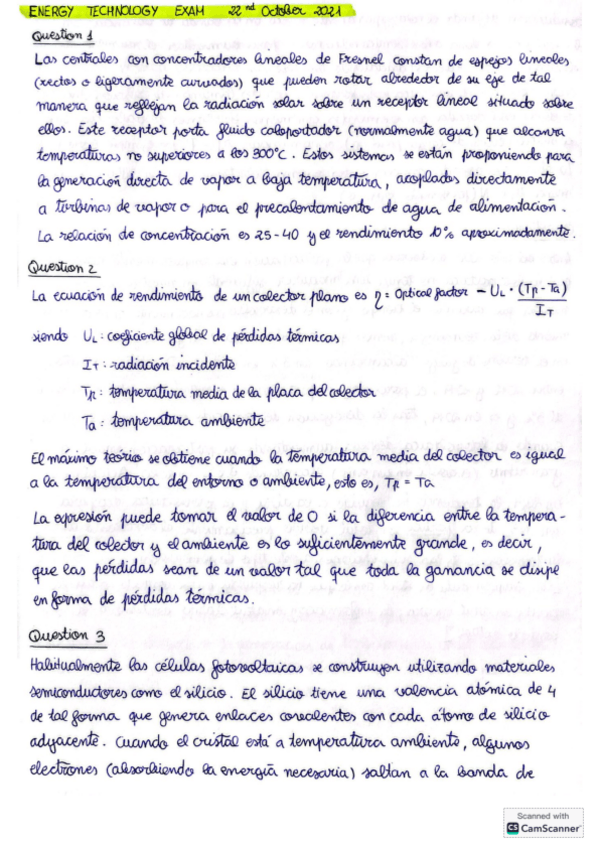 ENERGY TECHNOLOGY EXAM 22nd October 2021
Question 1
Las centrales con concentradores lineales de Fresnel constan de espejos lineales
(rectos o ligeramente curvados) que pueden rotar alrededor de su eje de tal
manera que reflejan la radiación solar sobre un receptor lineal situado sobre
ellos. Este receptor porta fluido caloportador (normalmente agua) que alcanza
temperaturas no superiores a los 300°C. Estos sistemas se están proponiendo para
la generación directa de vapor a baja temperatura, acoplados directamente
a turbinas de vapor o para el precalentamiento de agua de alimentación.
La relación de concentración es 25-40 y el rendimiento 10% aproximadamente.
Question 2
La ecuación de rendimiento de un colector plano es η = Optical factor - UL · (Tp - Ta) / IT
siendo UL: coeficiente global de pérdidas térmicas
IT: radiación incidente
Tp: temperatura media de la placa del colector
Ta: temperatura ambiente
El máximo teórico se obtiene cuando la temperatura media del colector es igual
a la temperatura del entorno o ambiente, esto es, Tp = Ta
La expresión puede tomar el valor de 0 si la diferencia entre la tempera-
tura del colector y el ambiente es lo suficientemente grande, es decir,
que las pérdidas sean de un valor tal que toda la ganancia se disipe
en forma de pérdidas térmicas.
Question 3
Habitualmente las células fotovoltaicas se construyen utilizando materiales
semiconductores como el silicio. El silicio tiene una valencia atómica de 4
de tal forma que genera enlaces covalentes con cada átomo de silicio
adyacente. Cuando el cristal está a temperatura ambiente, algunos
electrones (absorbiendo la energía necesaria) saltan a la banda de
Scanned with
CS CamScanner